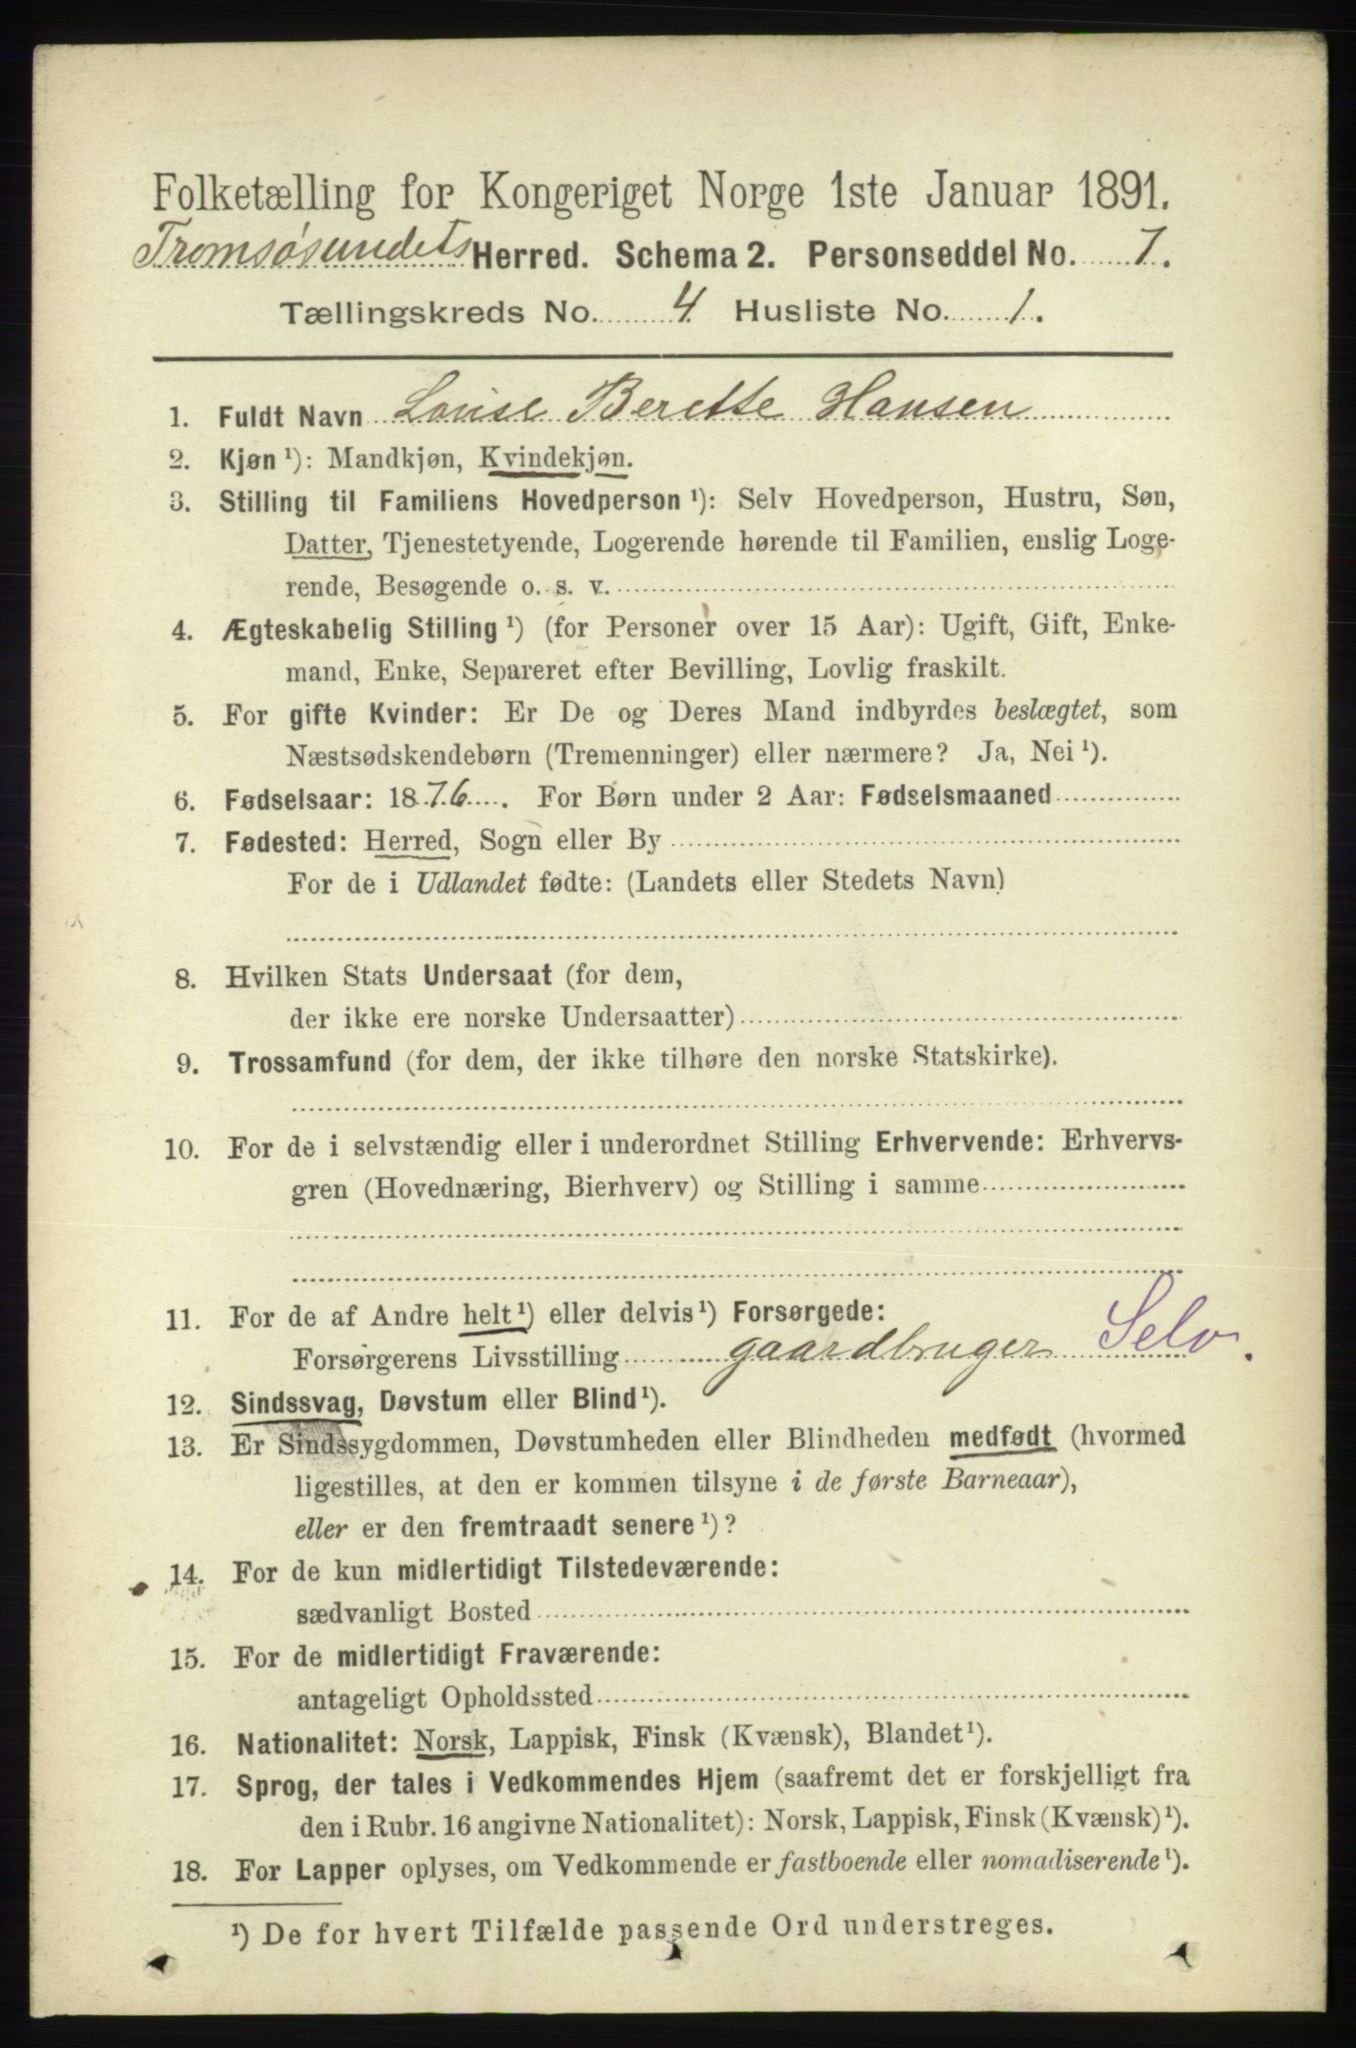 Folketælling for Kongeriget Norge 1ste Januar 1891.
Tromsøsundets Herred. Schema 2. Personseddel No. 7.
Tællingskreds No. 4 Husliste No. 1.
1. Fuldt Navn Louise Berette Hansen
2. Kjøn ¹): Mandkjøn, Kvindekjøn.
3. Stilling til Familiens Hovedperson ¹): Selv Hovedperson, Hustru, Søn,
Datter, Tjenestetyende, Logerende hørende til Familien, enslig Loge-
rende, Besøgende o. s. v.
4. Ægteskabelig Stilling ¹) (for Personer over 15 Aar): Ugift, Gift, Enke-
mand, Enke, Separeret efter Bevilling, Lovlig fraskilt.
5. For gifte Kvinder: Er De og Deres Mand indbyrdes beslægtet, som
Næstsødskendebørn (Tremenninger) eller nærmere? Ja, Nei ¹).
6. Fødselsaar: 1876. For Børn under 2 Aar: Fødselsmaaned
7. Fødested: Herred, Sogn eller By
For de i Udlandet fødte: (Landets eller Stedets Navn)
8. Hvilken Stats Undersaat (for dem,
der ikke ere norske Undersaatter)
9. Trossamfund (for dem, der ikke tilhøre den norske Statskirke).
10. For de i selvstændig eller i underordnet Stilling Erhvervende: Erhvervs-
gren (Hovednæring, Bierhverv) og Stilling i samme
11. For de af Andre helt ¹) eller delvis ¹) Forsørgede:
Forsørgerens Livsstilling gaardbruger Selv.
12. Sindssvag, Døvstum eller Blind ¹).
13. Er Sindssygdommen, Døvstumheden eller Blindheden medfødt (hvormed
ligestilles, at den er kommen tilsyne i de første Barneaar),
eller er den fremtraadt senere ¹)?
14. For de kun midlertidigt Tilstedeværende:
sædvanligt Bosted
15. For de midlertidigt Fraværende:
antageligt Opholdssted
16. Nationalitet: Norsk, Lappisk, Finsk (Kvænsk), Blandet ¹).
17. Sprog, der tales i Vedkommendes Hjem (saafremt det er forskjelligt fra
den i Rubr. 16 angivne Nationalitet): Norsk, Lappisk, Finsk (Kvænsk) ¹).
18. For Lapper oplyses, om Vedkommende er fastboende eller nomadiserende ¹).
¹) De for hvert Tilfælde passende Ord understreges.